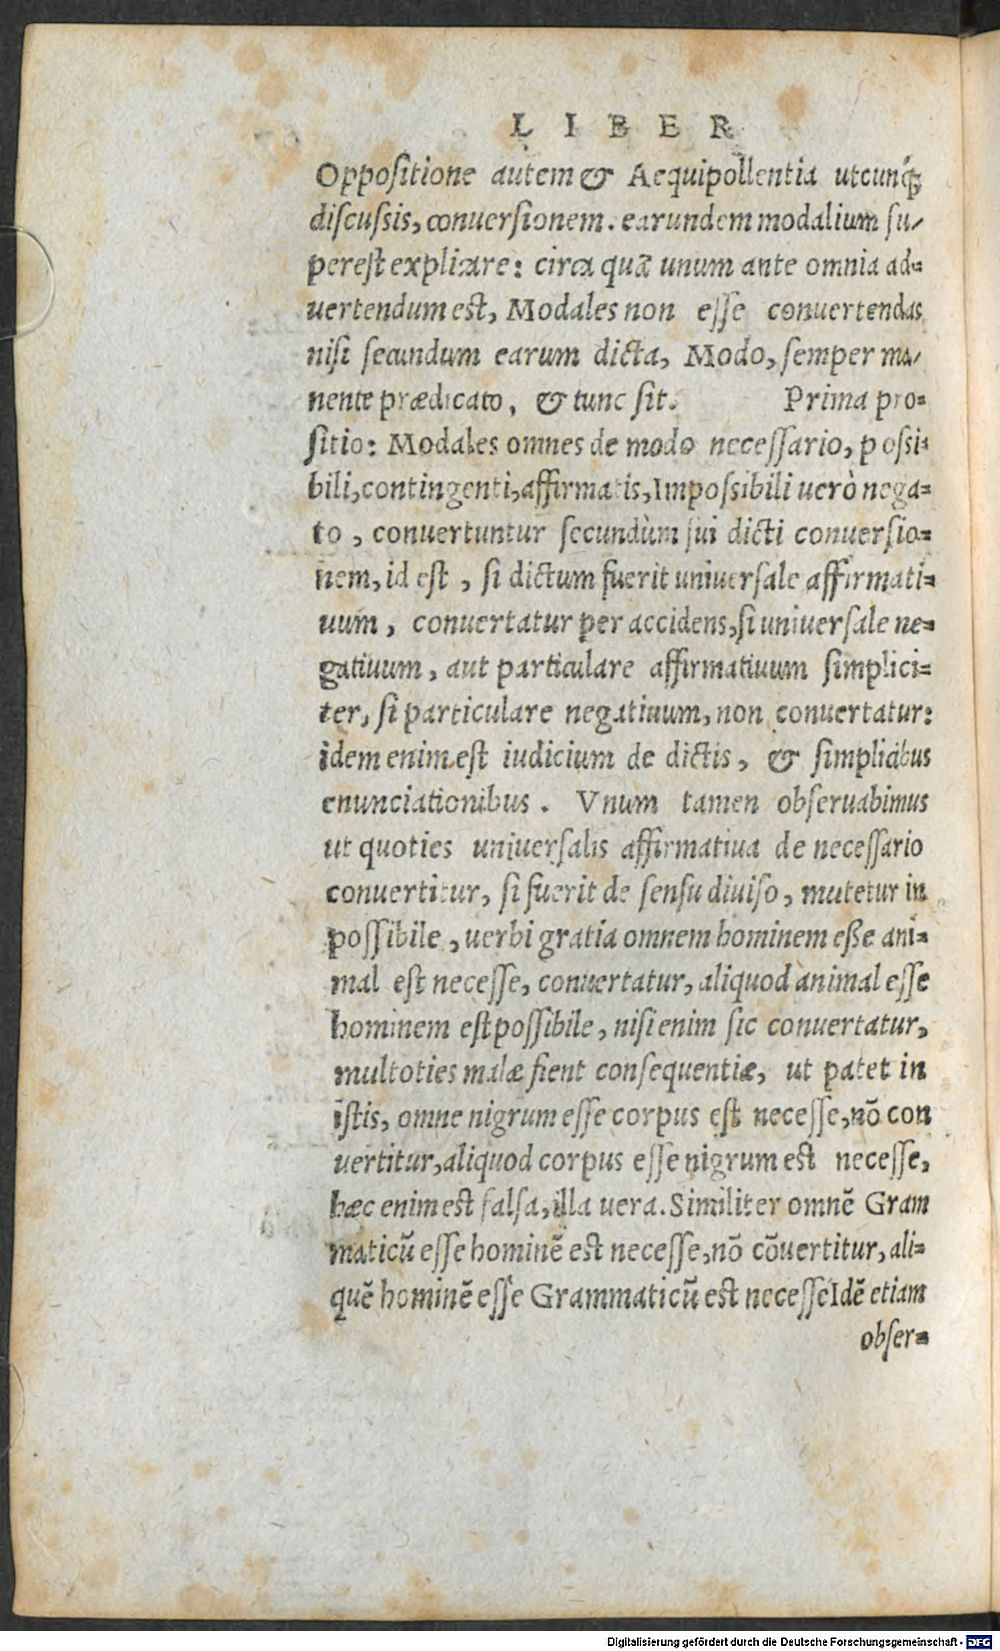 LIBER
Oppositione autem & Aequipollentia utcunq́;
discussis, conuersionem. earundem modalium su/
perest explicare: circa quã unum ante omnia ad=
uertendum est, Modales non esse conuertendas
nisi secundum earum dicta, Modo, semper ma/
nente prædicato, & tunc sit. Prima pro=
sitio: Modales omnes de modo necessario, possi=
bili, contingenti, affirmatis, Impossibili uerò nega=
to, conuertuntur secundùm sui dicti conuersio=
nem, id est, si dictum fuerit uniuersale affirmati=
uum, conuertatur per accidens, si uniuersale ne=
gatiuum, aut particulare affirmatiuum simplici=
ter, si particulare negatiuum, non conuertatur:
idem enim est iudicium de dictis, & simplicibus
enunciationibus. Vnum tamen obseruabimus
ut quoties uniuersalis affirmatiua de necessario
conuertitur, si fuerit de sensu diuiso, mutetur in
possibile, uerbi gratia omnem hominem eße ani=
mal est necesse, conuertatur, aliquod animal esse
hominem est possibile, nisi enim sic conuertatur,
multoties malæ fient consequentiæ, ut patet in
istis, omne nigrum esse corpus est necesse, nõ con
uertitur, aliquod corpus esse nigrum est necesse,
hæc enim est falsa, illa uera. Similiter omnẽ Gram
maticũ esse hominẽ est necesse, nõ cõuertitur, ali=
quẽ hominẽ esse Grammaticũ est necesse Idẽ etiam
obser=
Digitalisierung gefördert durch die Deutsche Forschungsgemeinschaft - DFG